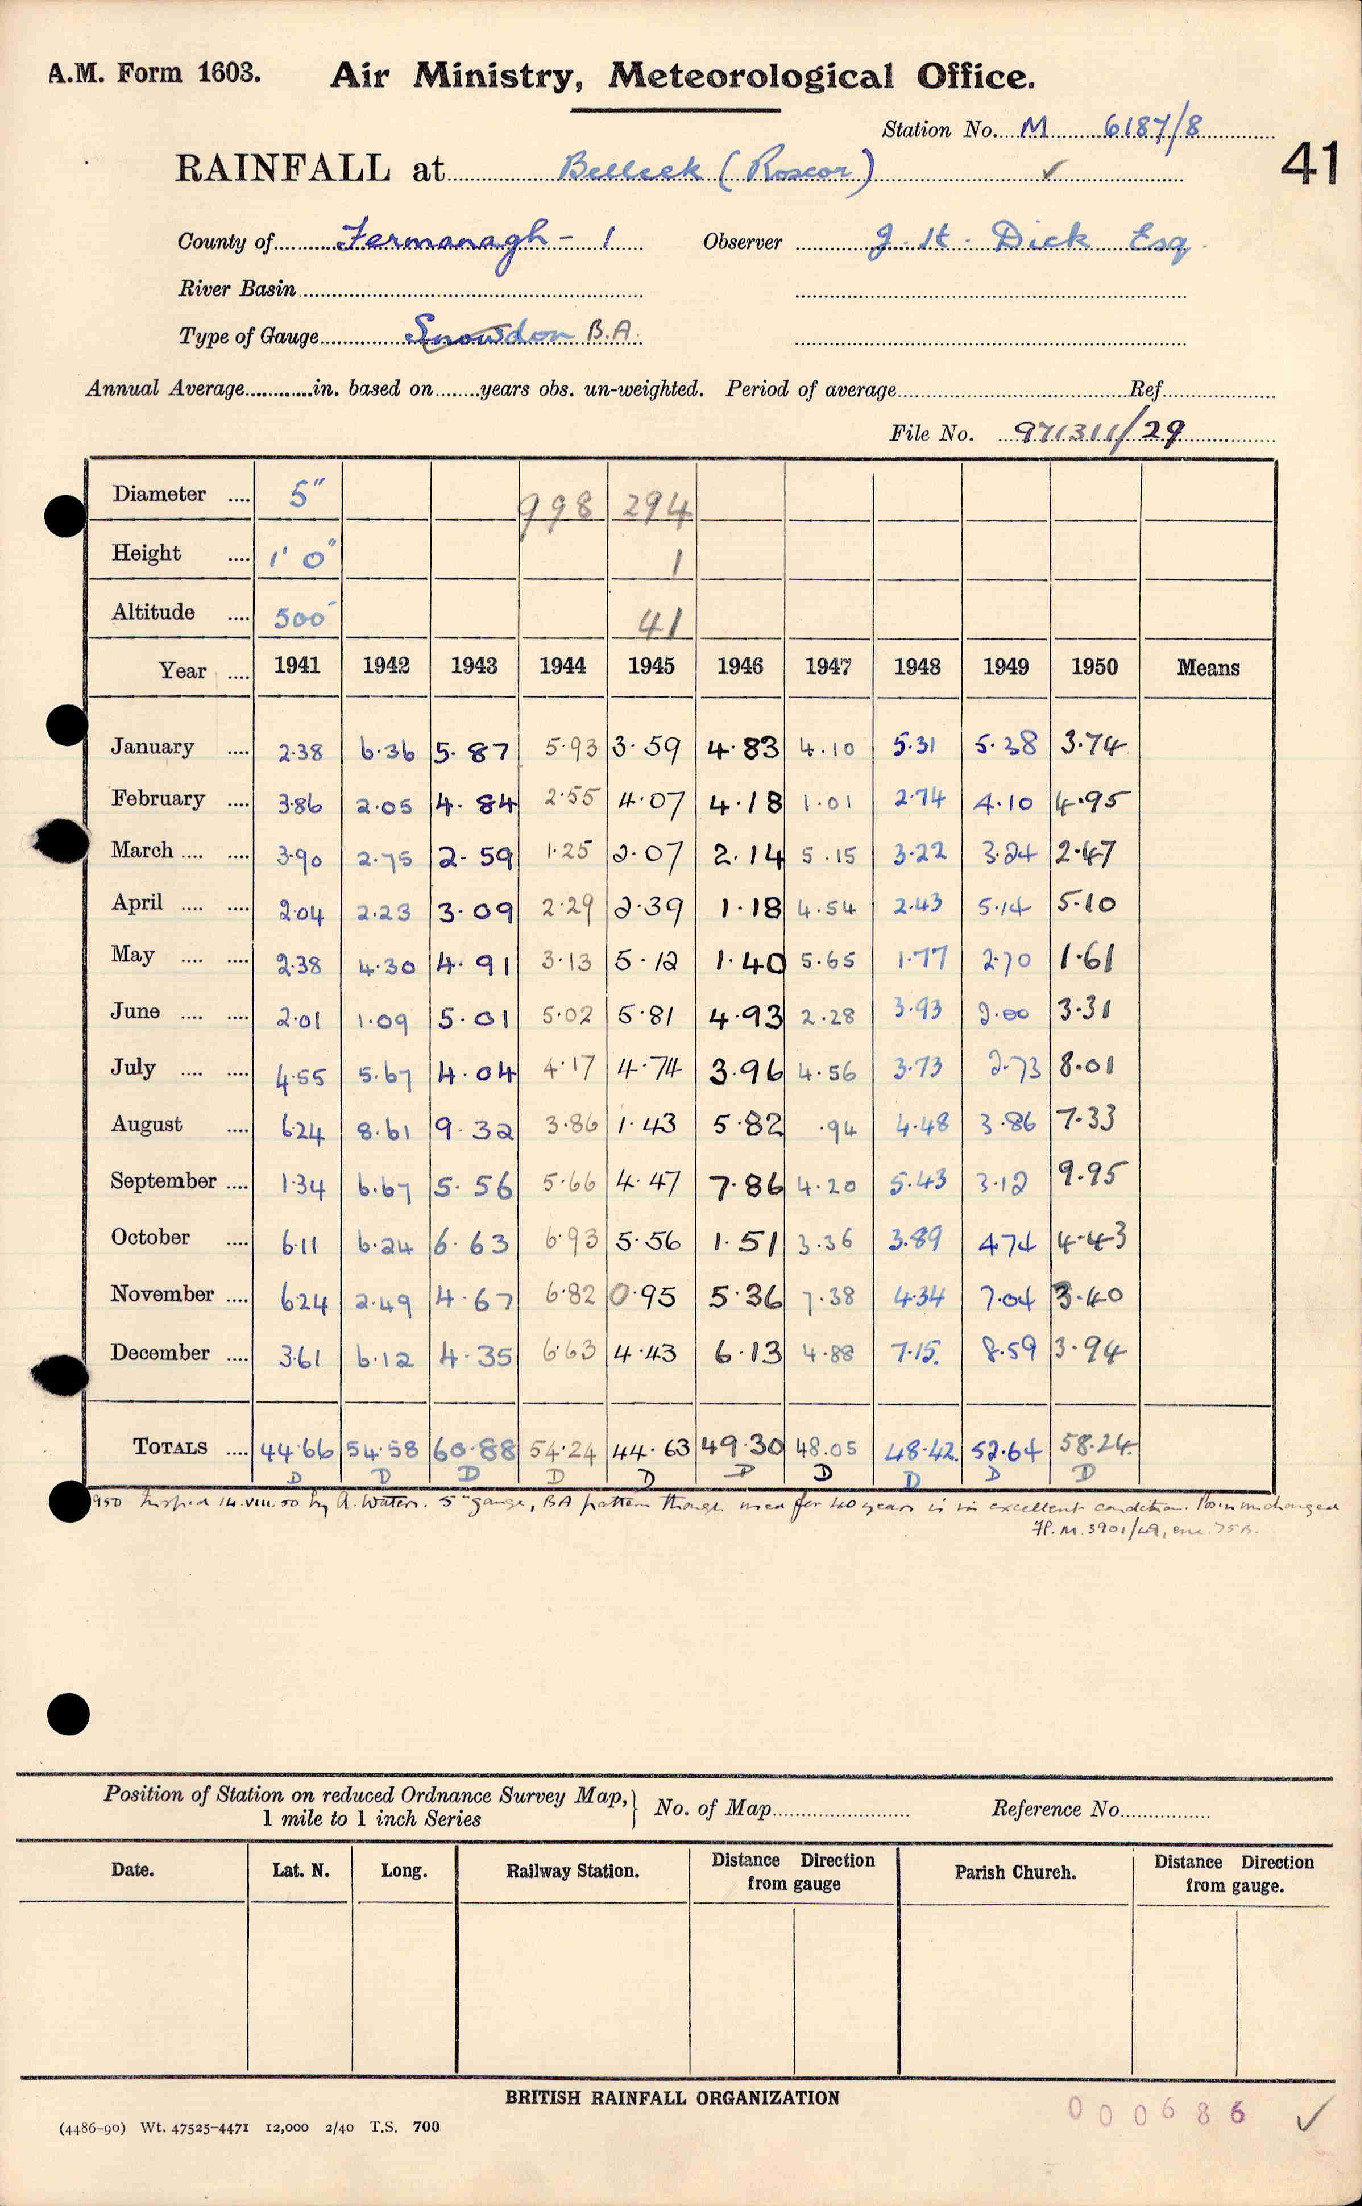 A.M. Form 1603. Air Ministry, Meteorological Office.
Station No. M 6187/8
41
RAINFALL at Belleek (Roscor) ✓
County of Fermanagh - 1 Observer J. H. Dick Esq.
River Basin
Type of Gauge Snowdon B.A.
Annual Average in. based on years obs. un-weighted. Period of average Ref.
File No. 971311/29
Diameter 5" 998 294
Height 1' 0" 1
Altitude 500' 41
Year 1941 1942 1943 1944 1945 1946 1947 1948 1949 1950 Means
January 2.38 6.36 5.87 5.93 3.59 4.83 4.10 5.31 5.38 3.74
February 3.86 2.05 4.84 2.55 4.07 4.18 1.01 2.74 4.10 4.95
March 3.90 2.75 2.59 1.25 2.07 2.14 5.15 3.22 3.24 2.47
April 2.04 2.23 3.09 2.29 2.39 1.18 4.54 2.43 5.14 5.10
May 2.38 4.30 4.91 3.13 5.12 1.40 5.65 1.77 2.70 1.61
June 2.01 1.09 5.01 5.02 5.81 4.93 2.28 3.93 2.00 3.31
July 4.55 5.67 4.04 4.17 4.74 3.96 4.56 3.73 2.73 8.01
August 6.24 8.61 9.32 3.86 1.43 5.82 .94 4.48 3.86 7.33
September 1.34 6.67 5.56 5.66 4.47 7.86 4.20 5.43 3.12 9.95
October 6.11 6.24 6.63 6.93 5.56 1.51 3.36 3.89 4.74 4.43
November 6.24 2.49 4.67 6.82 0.95 5.36 7.38 4.34 7.04 3.40
December 3.61 6.12 4.35 6.63 4.43 6.13 4.88 7.15. 8.59 3.94
TOTALS 44.66 54.58 60.88 54.24 44.63 49.30 48.05 48.42. 52.64 58.24.
D D D D D D D D D D
950 Insp'd 14.VIII.50 by A. Waters. 5" gauge, BA pattern though used for 40 years is in excellent condition. Pos'n unchanged
M.3901/49, enc. 75B.
Position of Station on reduced Ordnance Survey Map, } No. of Map Reference No.
1 mile to 1 inch Series
Date. Lat. N. Long. Railway Station. Distance Direction from gauge Parish Church. Distance Direction from gauge.
BRITISH RAINFALL ORGANIZATION
000686 ✓
(4486-90) Wt. 47525-4471 12,000 2/40 T.S. 700